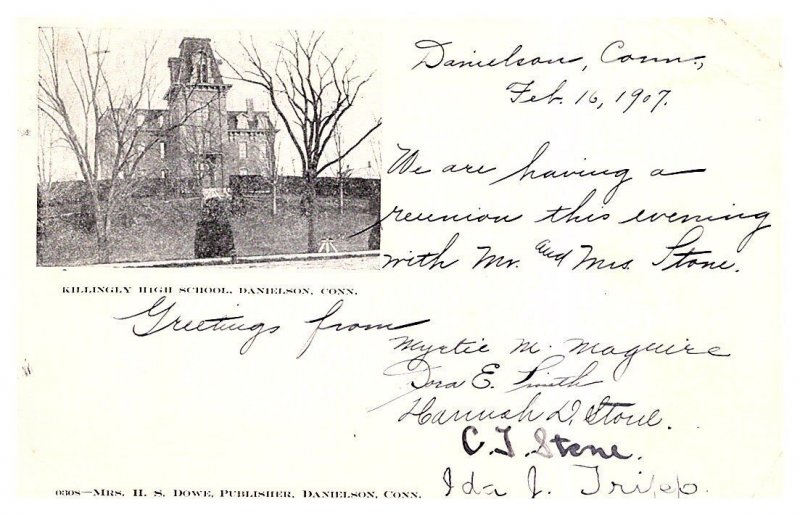 Danielson, Conn.,
Feb. 16, 1907.
We are having a
reunion this evening
with Mr. and Mrs. Stone.
KILLINGLY HIGH SCHOOL, DANIELSON, CONN.
Greetings from
Myrtie M. Maguire
Dora E. Smith
Hannah D. Stone.
C. T. Stone.
Ida J. Tripp.
—MRS. H. S. DOWE, PUBLISHER, DANIELSON, CONN.